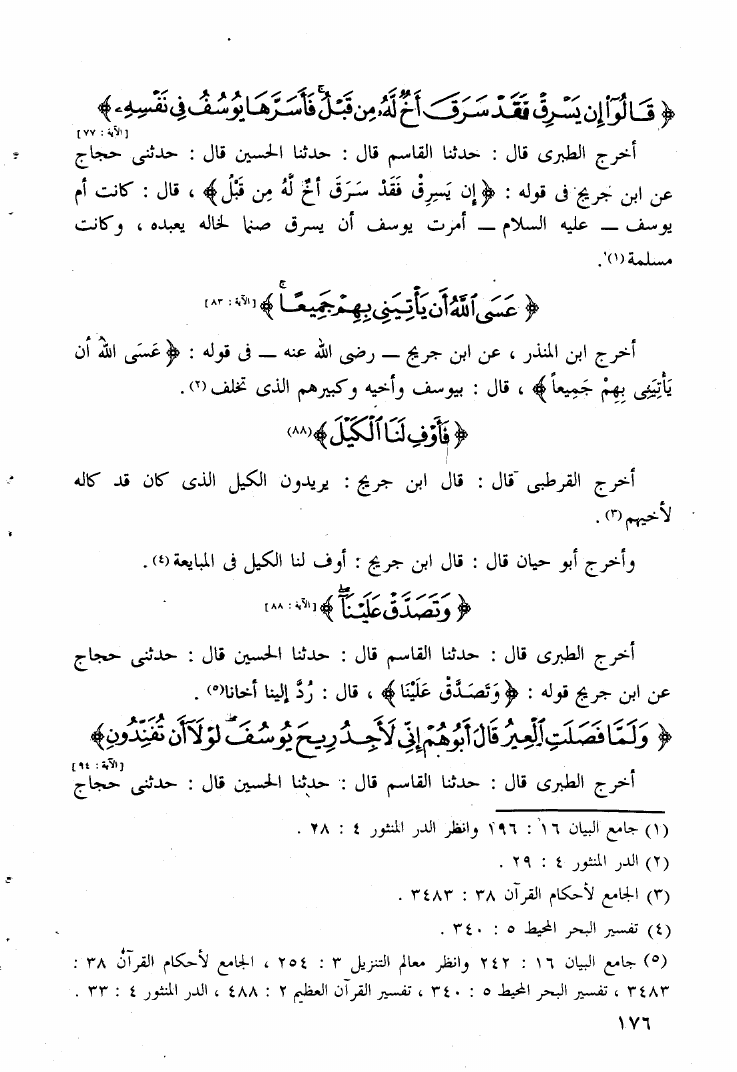 ﴿ قَالُوٓا۟ إِن يَسْرِقْ فَقَدْ سَرَقَ أَخٌ لَّهُۥ مِن قَبْلُ ۚ فَأَسَرَّهَا يُوسُفُ فِى نَفْسِهِۦ ﴾
[الآية : ٧٧]
أخرج الطبرى قال : حدثنا القاسم قال : حدثنا الحسين قال : حدثنى حجاج
عن ابن جريج فى قوله : ﴿ إِن يَسرِقْ فَقَدْ سَرَقَ أَخٌ لَّهُ مِن قَبْلُ ﴾ ، قال : كانت أم
يوسف ــ عليه السلام ــ أمرت يوسف أن يسرق صنما لخاله يعبده ، وكانت
مسلمة (١) .
﴿ عَسَى ٱللَّهُ أَن يَأْتِيَنِى بِهِمْ جَمِيعًا ۚ ﴾ [الآية : ٨٣]
أخرج ابن المنذر ، عن ابن جريج ــ رضى الله عنه ــ فى قوله : ﴿ عَسَى اللهُ أن
يَأْتِيَنِى بِهِمْ جَمِيعاً ﴾ ، قال : بيوسف وأخيه وكبيرهم الذى تخلف (٢) .
﴿ فَأَوْفِ لَنَا ٱلْكَيْلَ ﴾ (٨٨)
أخرج القرطبى قال : قال ابن جريج : يريدون الكيل الذى كان قد كاله
لأخيهم (٣) .
وأخرج أبو حيان قال : قال ابن جريج : أوف لنا الكيل فى المبايعة (٤) .
﴿ وَتَصَدَّقْ عَلَيْنَآ ۖ ﴾ [الآية : ٨٨]
أخرج الطبرى قال : حدثنا القاسم قال : حدثنا الحسين قال : حدثنى حجاج
عن ابن جريج قوله : ﴿ وَتَصَدَّقْ عَلَيْنَا ﴾ ، قال : رُدَّ إلينا أخانا (٥) .
﴿ وَلَمَّا فَصَلَتِ ٱلْعِيرُ قَالَ أَبُوهُمْ إِنِّى لَأَجِدُ رِيحَ يُوسُفَ ۖ لَوْلَآ أَن تُفَنِّدُونِ ﴾
[الآية : ٩٤]
أخرج الطبرى قال : حدثنا القاسم قال : حدثنا الحسين قال : حدثنى حجاج
(١) جامع البيان ١٦ : ١٩٦ وانظر الدر المنثور ٤ : ٢٨ .
(٢) الدر المنثور ٤ : ٢٩ .
(٣) الجامع لأحكام القرآن ٣٨ : ٣٤٨٣ .
(٤) تفسير البحر المحيط ٥ : ٣٤٠ .
(٥) جامع البيان ١٦ : ٢٤٢ وانظر معالم التنزيل ٣ : ٢٥٤ ، الجامع لأحكام القرآن ٣٨ :
٣٤٨٣ ، تفسير البحر المحيط ٥ : ٣٤٠ ، تفسير القرآن العظيم ٢ : ٤٨٨ ، الدر المنثور ٤ : ٣٣ .
١٧٦